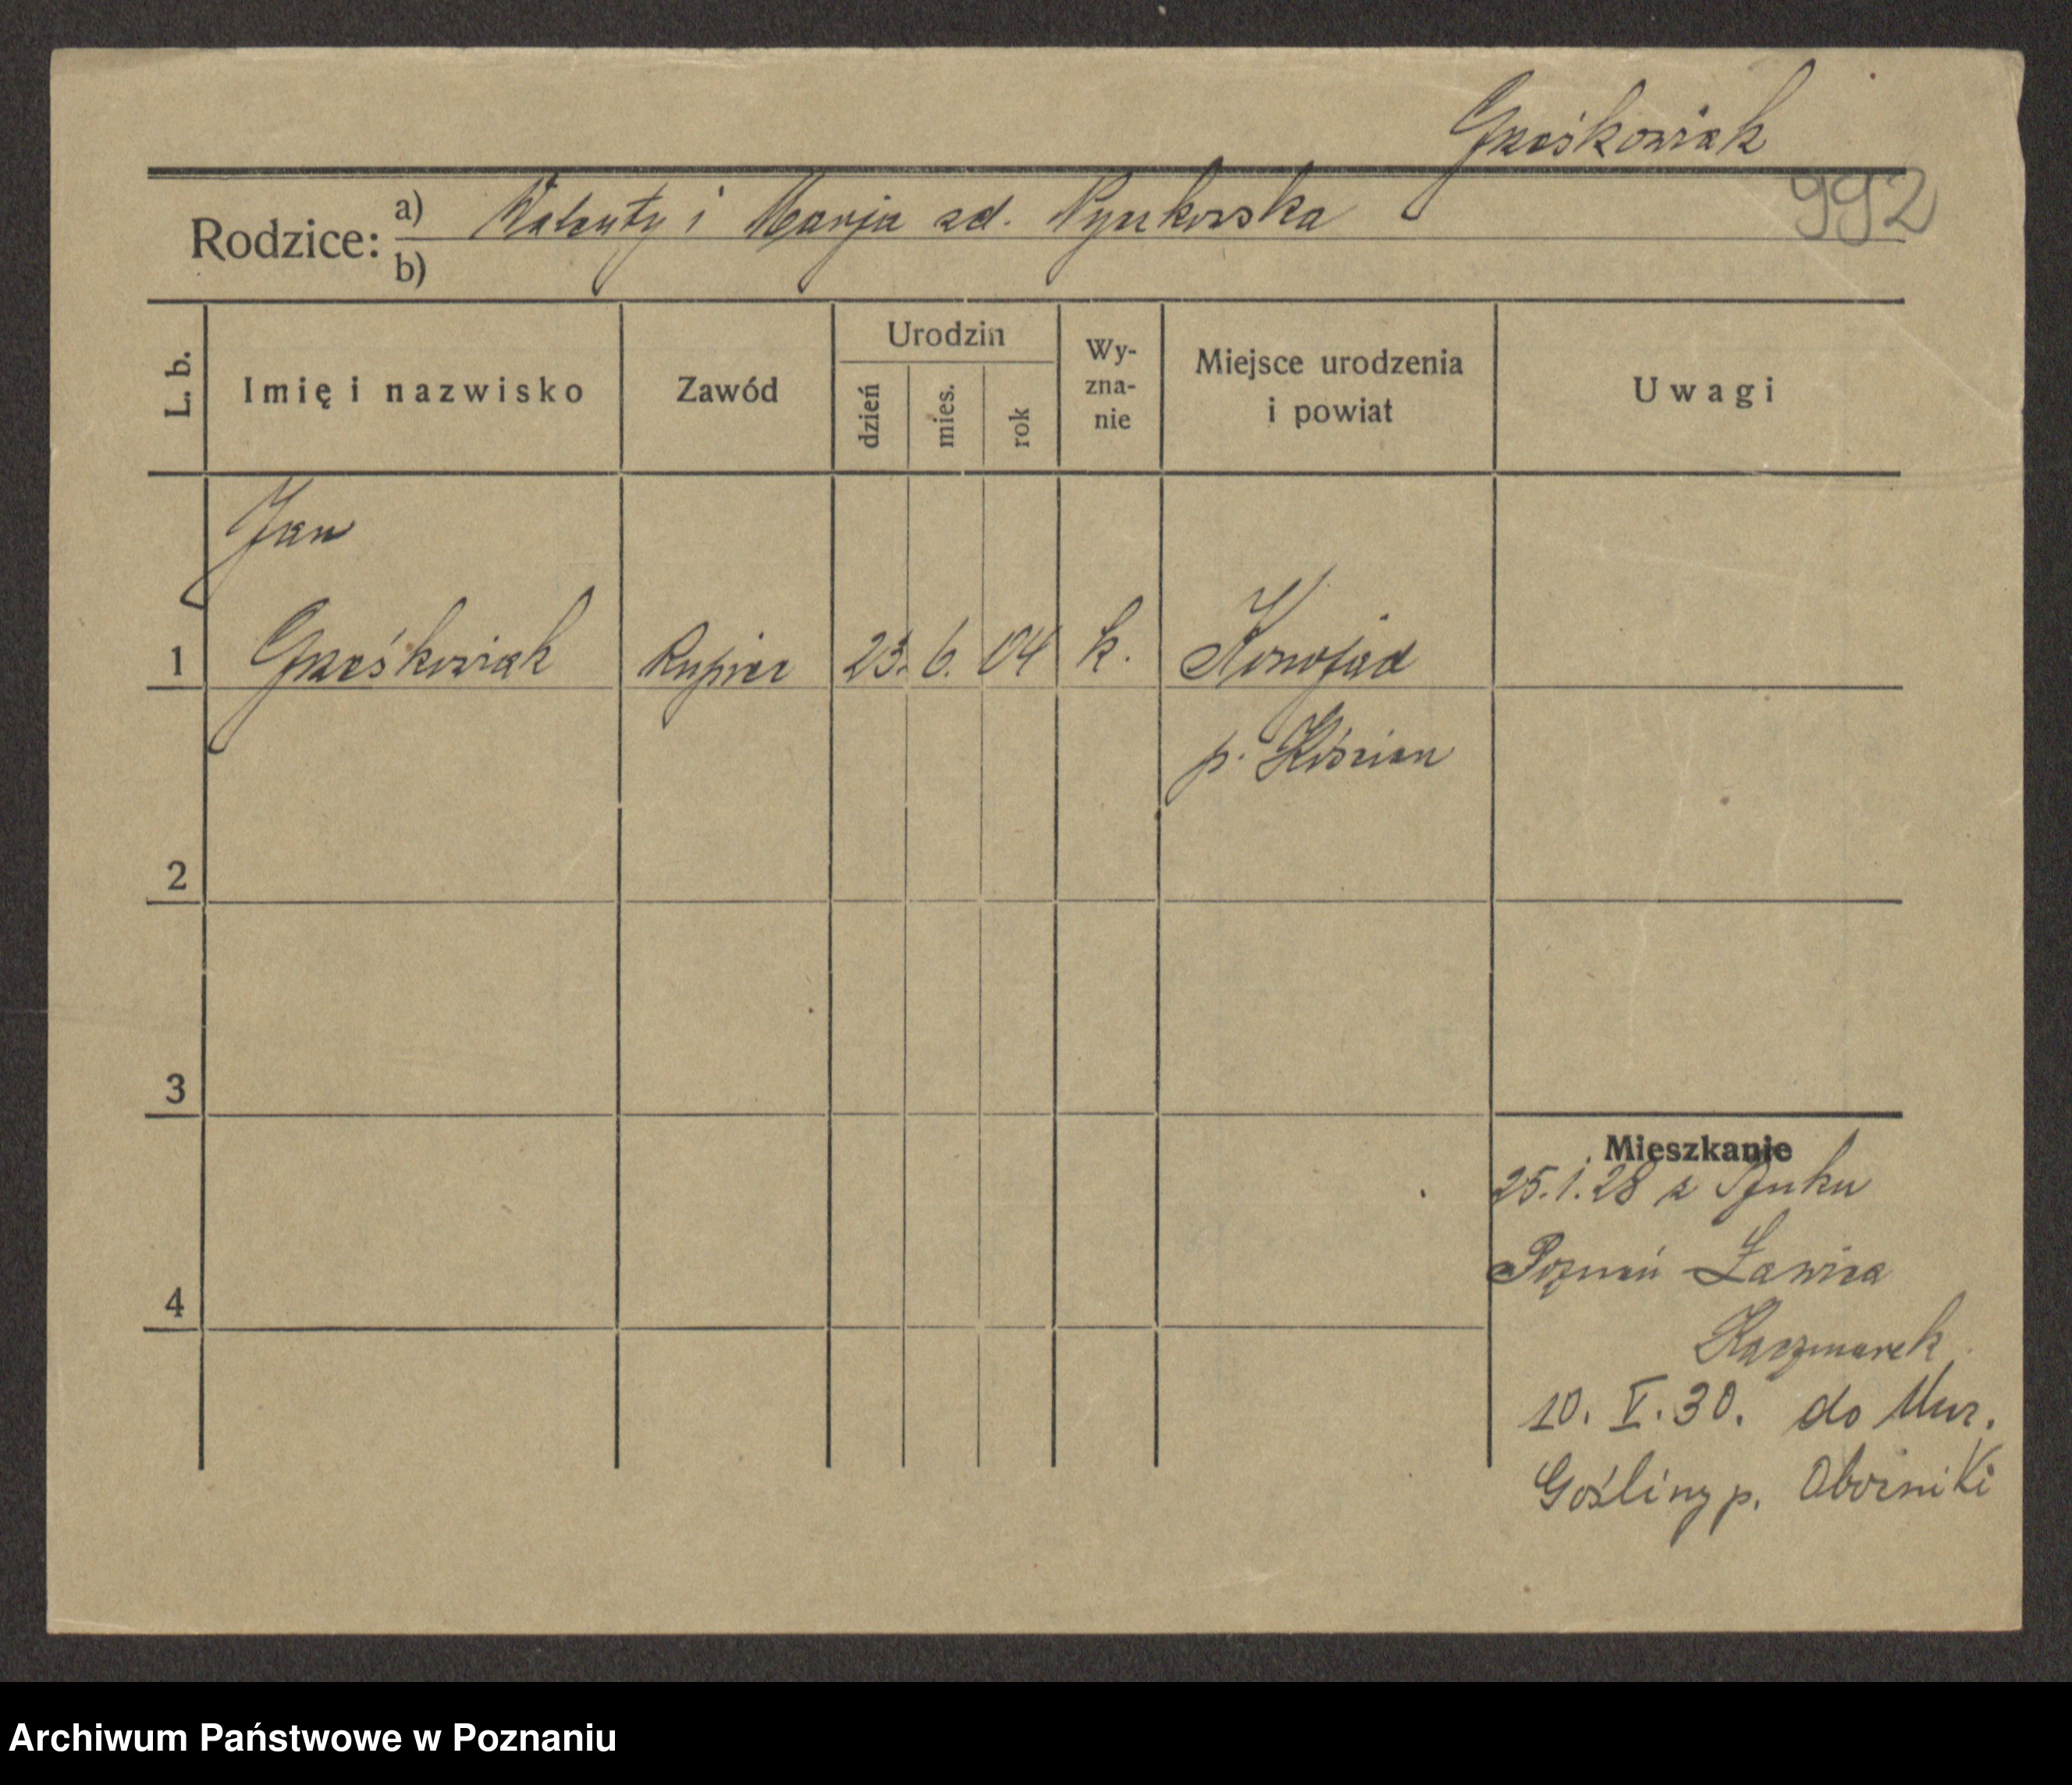 Grześkowiak
992
Rodzice: a) Walenty i Marja zd.
b)
L. b. Imię i nazwisko Zawód Urodzin Wy- Miejsce urodzenia Uwagi
dzień mies. rok zna- i powiat
nie
Jan
1 Grześkowiak kupiec 23. 6. 04 k. Konojad
p. Kościan
2
3
Mieszkanie
25.1.28 z
4 Poznań Ławica
Kaczmarek
10. V. 30. do Mur.
Gośliny p. Oborniki
Archiwum Państwowe w Poznaniu